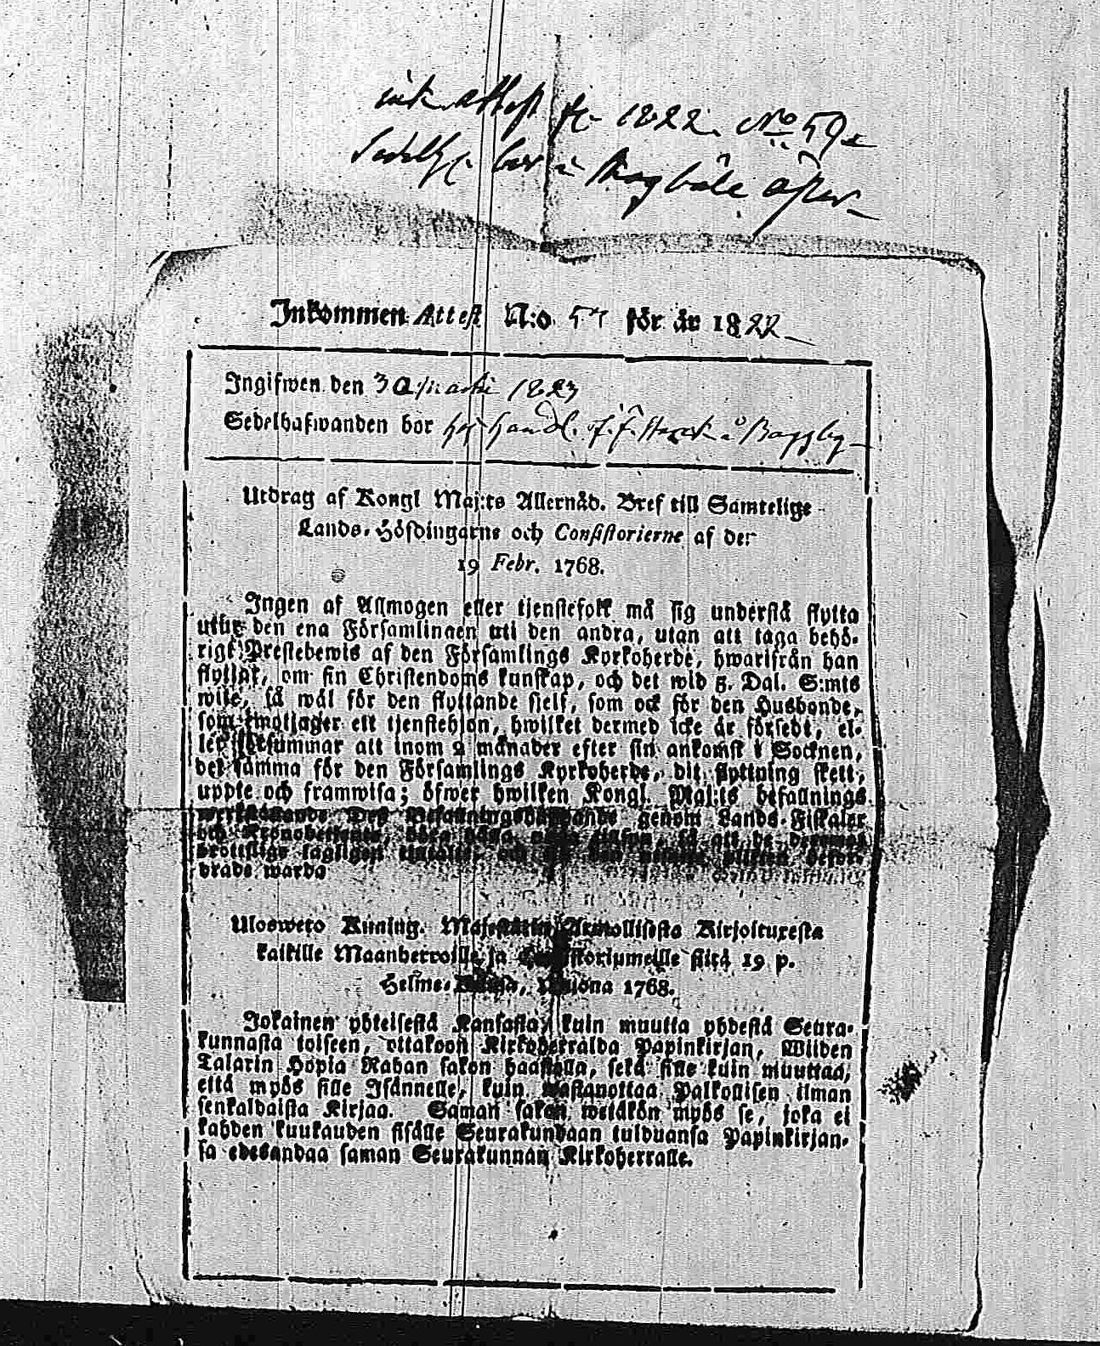 ink. attest fr 1822. No 59
bor å Bagböle
Inkommen Attest N:o. 57 för år 1822
Ingifwen den 30 Martii 1823
Sedelhafwanden bor hos Handl. J. F. å Baggby
Utdrag af Kongl Maj:ts Allernåd. Bref till Samtelige
Lands-Höfdingarne och Consistorierne af den
19 Febr. 1768.
Ingen af Allmogen eller tjenstefolk må sig understå flytta
utur den ena Församlingen uti den andra, utan att taga behö-
rigt Prestebewis af den Församlings Kyrkoherde, hwarifrån han
flyttar, om sin Christendoms kunskap, och det wid 5. Dal. S:mts
wite, så wäl för den flyttande sjelf, som ock för den Husbonde,
som emottager ett tjenstehjon, hwilket dermed icke är försedt, el-
ler försummar att inom 2 månader efter sin ankomst i Socknen,
det samma för den Församlings Kyrkoherde, dit flyttning skett,
uppte och framwisa; öfwer hwilken Kongl. Maj:ts befallnings
werkställande Des Befallningshafwande genom Lands-Fiskaler
och Kronobetjente, böra hålla så att de
lagligen tiltalte och den
drade warda
Ulosweto Kuning. Majestätin Armollisesta Kirjoituxesta
kaikille Maanherroille ja Consistoriumeille siitä 19 p.
Helme-Kuusa, Wuonna 1768.
Jokainen yhteisestä Kansasta, kuin muutta yhdestä Seura-
kunnasta toiseen, ottakoon Kirkoherralda Papinkirjan, Wiiden
Talarin Hopia Rahan sakon haastolla, sekä sille kuin muuttaa,
että myös sille Isännelle, kuin wastanottaa Palkollisen ilman
senkaldaista Kirjaa. Saman sakon wetäkön myös se, joka ei
kahden kuukauden sisälle Seurakundaan tulduansa Papinkirjan-
sa edesandaa saman Seurakunnan Kirkoherralle.